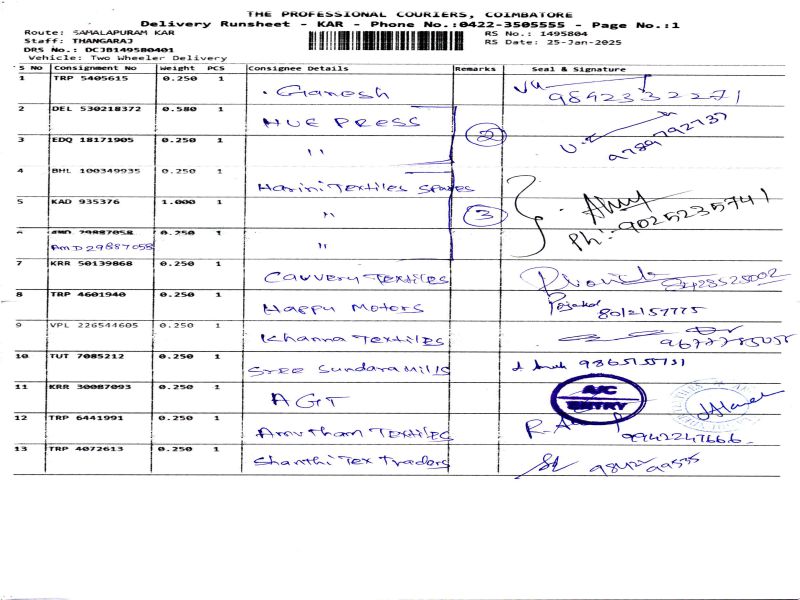 THE PROFESSIONAL COURIERS, COIMBATORE
Delivery Runsheet - KAR - Phone No.:0422-3505555 - Page No.:1
Route: SAMALAPURAM KAR RS No.: 1495804
Staff: THANGARAJ RS Date: 25-Jan-2025
DRS No.: DCJB149580401
Vehicle: Two Wheeler Delivery
S No Consignment No Weight PCS Consignee Details Remarks Seal & Signature
1 TRP 5405615 0.250 1 Ganesh 9842332271
2 DEL 530218372 0.580 1 HUE PRESS
3 EDQ 18171905 0.250 1 " 2 9789792737
4 BHL 100349935 0.250 1 Harini Textiles Spares
5 KAD 935376 1.000 1 " 3 Ph:- 9025235741
6 AMD 29887058 0.250 1 "
AMD 29887058
7 KRR 50139868 0.250 1 Cauvery Textiles
8 TRP 4601940 0.250 1 Happy Motors 8012157775
9 VPL 226544605 0.250 1 Khanna Textiles
10 TUT 7085212 0.250 1 Sree Sundara Mills
11 KRR 30087093 0.250 1 AGT A/C ENTRY
12 TRP 6441991 0.250 1 Amutham Textiles 9942247666
13 TRP 4072613 0.250 1 Shanthi Tex Traders